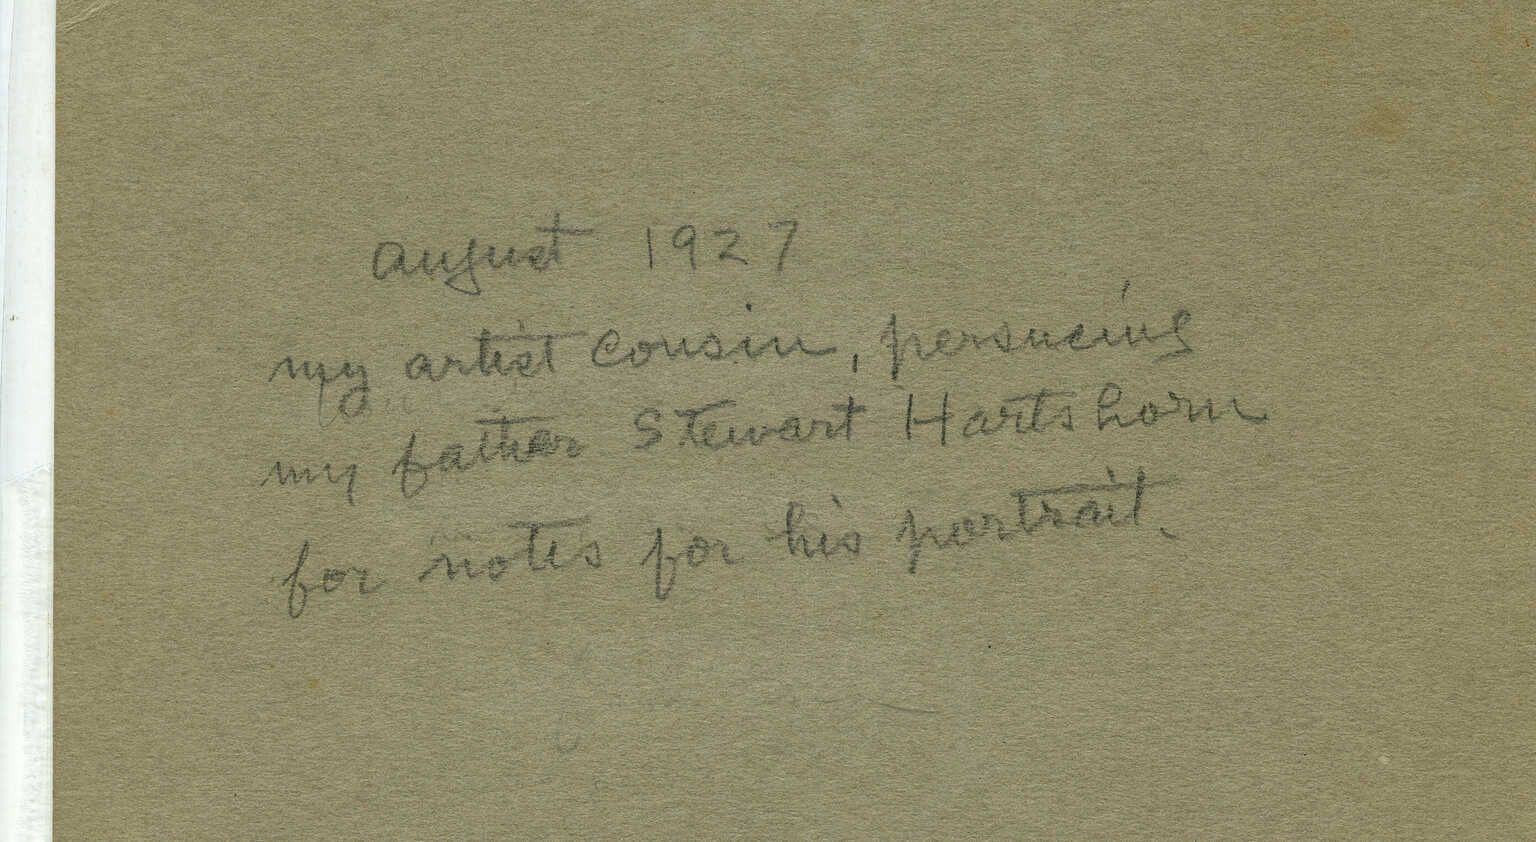 August 1927
my artist cousin, persueing
my father Stewart Hartshorn
for notes for his portrait.